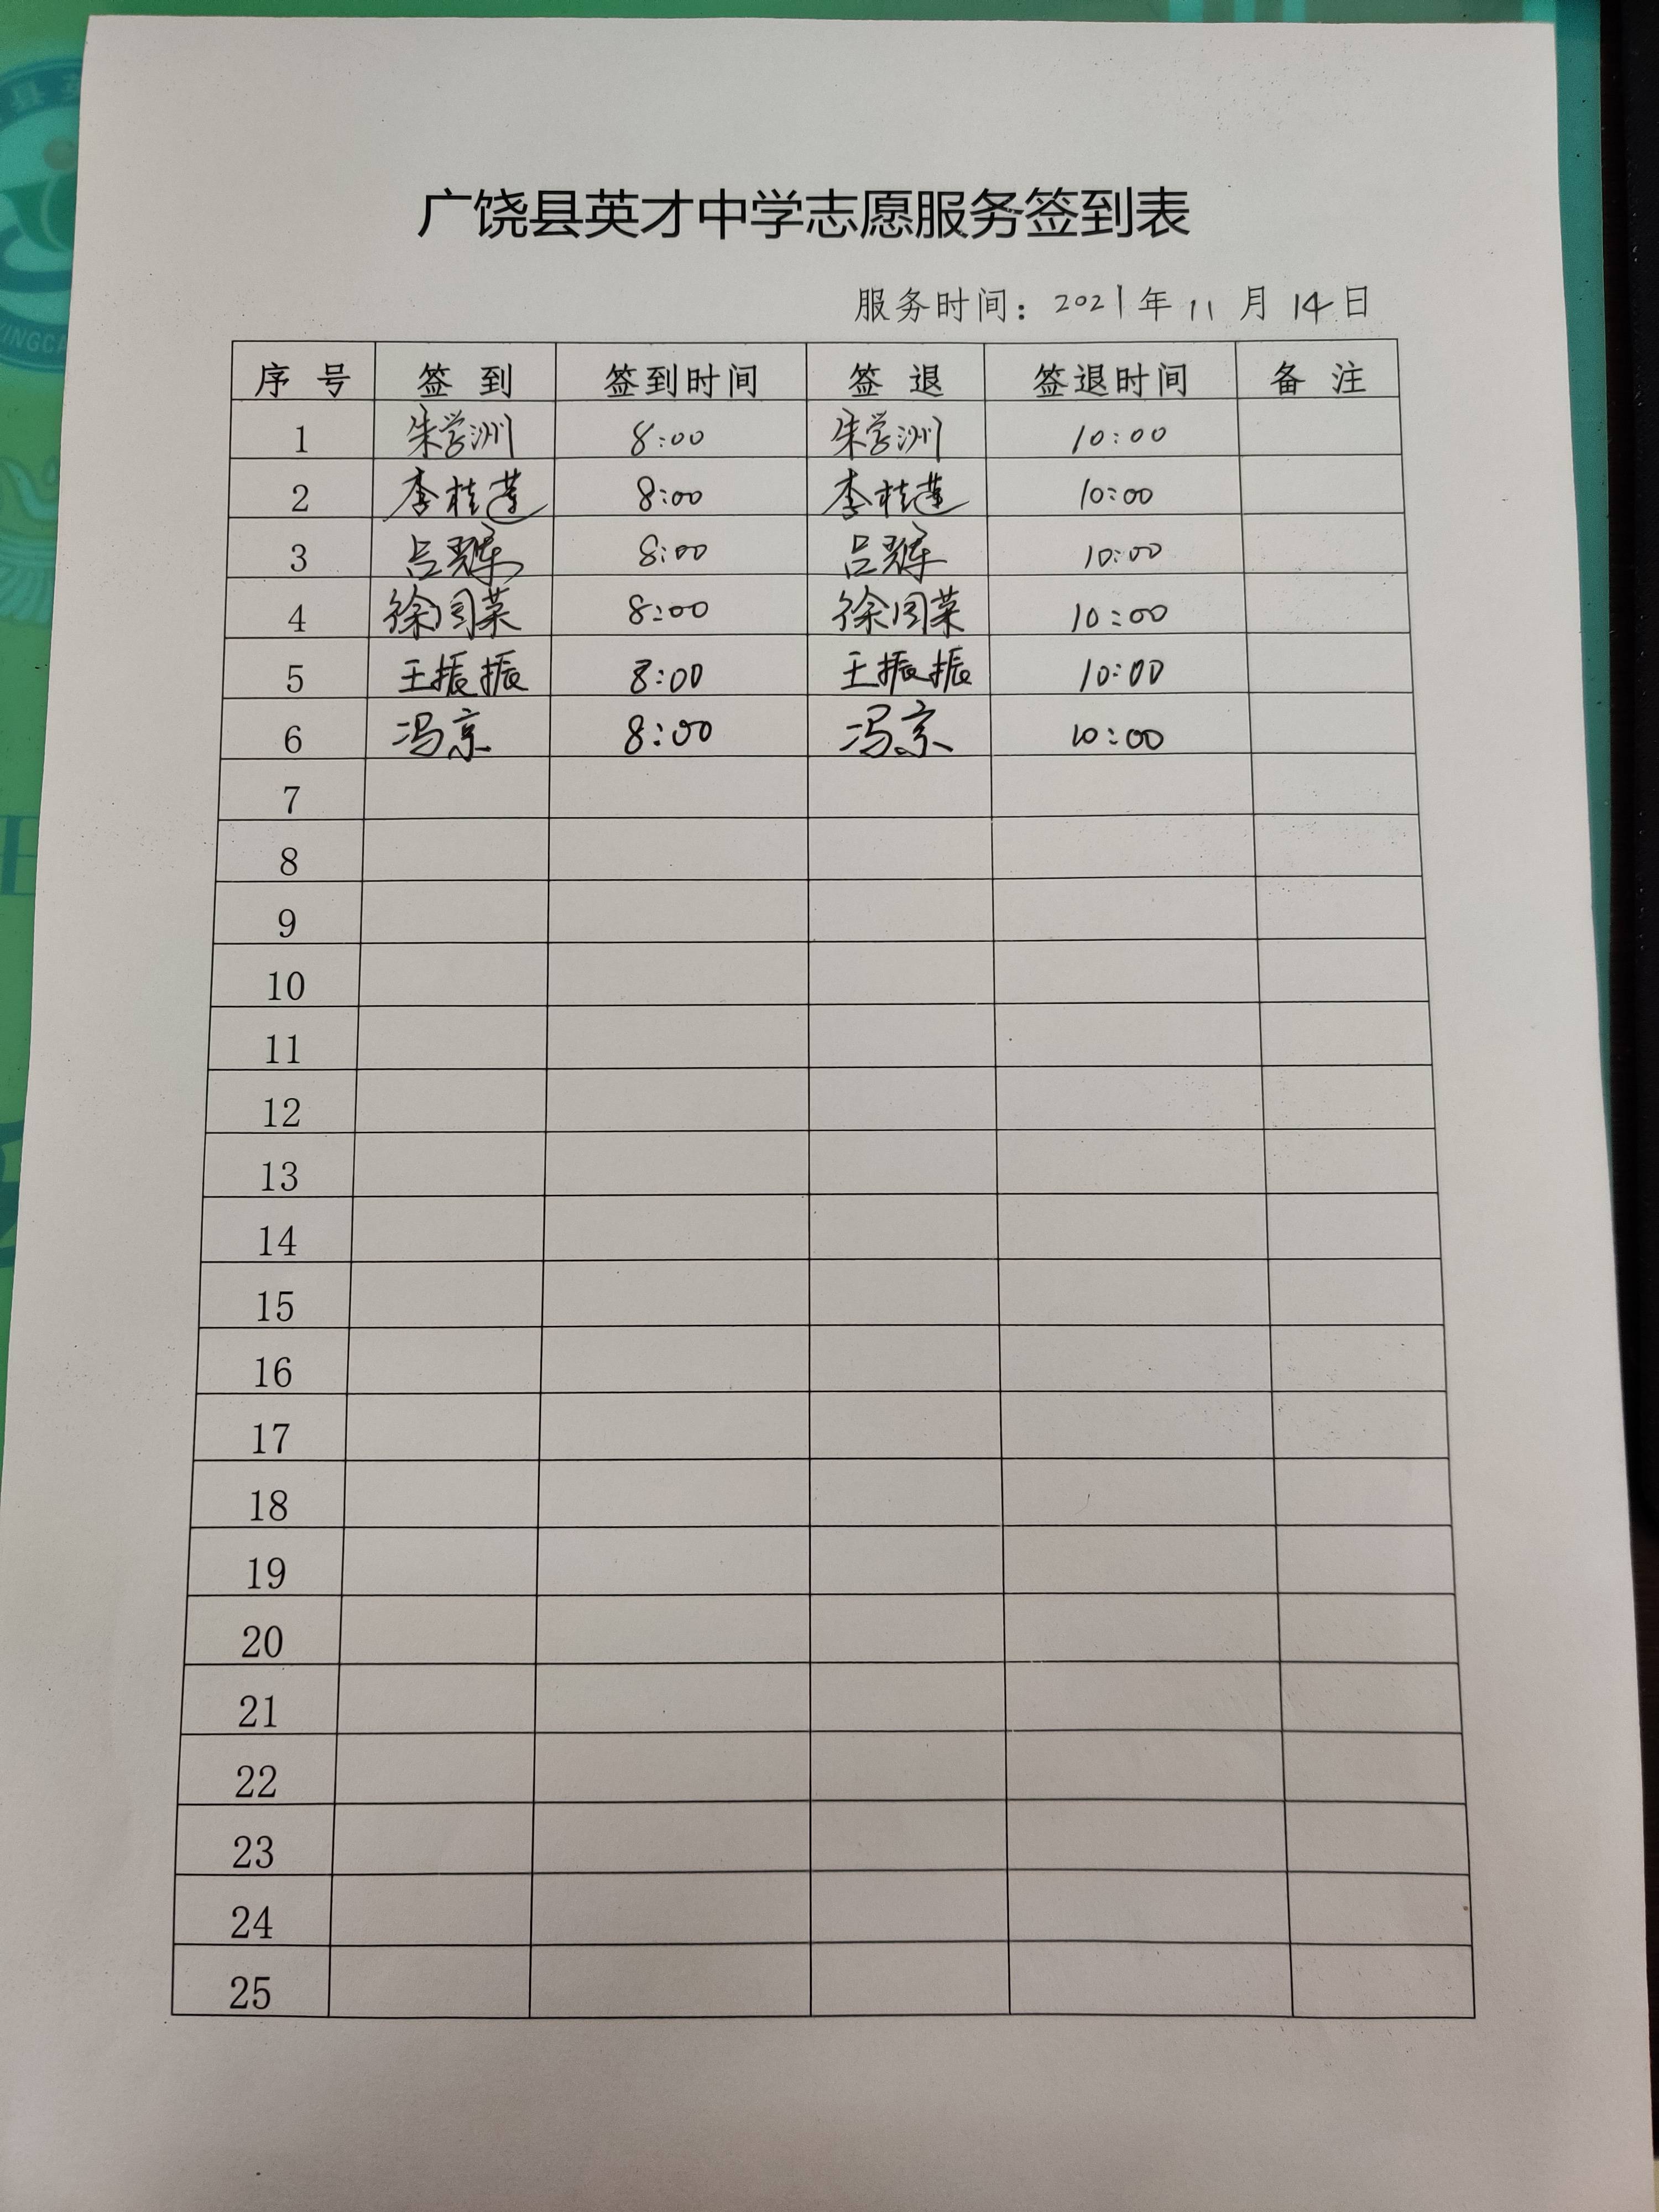 广饶县英才中学志愿服务签到表
服务时间：2021年11月14日
序号 签到 签到时间 签退 签退时间 备注
1 朱学洲 8:00 朱学洲 10:00
2 李桂莲 8:00 李桂莲 10:00
3 吕翠 8:00 吕翠 10:00
4 徐同菜 8:00 徐同菜 10:00
5 王振振 8:00 王振振 10:00
6 冯京 8:00 冯京 10:00
7
8
9
10
11
12
13
14
15
16
17
18
19
20
21
22
23
24
25